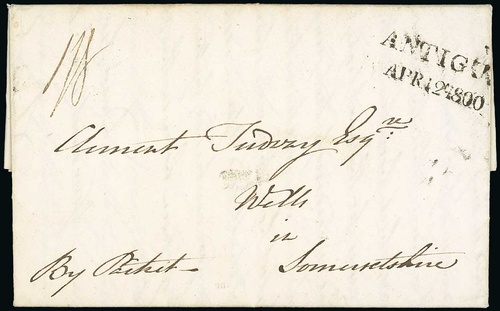 1/8
ANTIGUA
APR 12 1800
Clement Tudway Esqre:
Wells
in
By Packet
Somersetshire